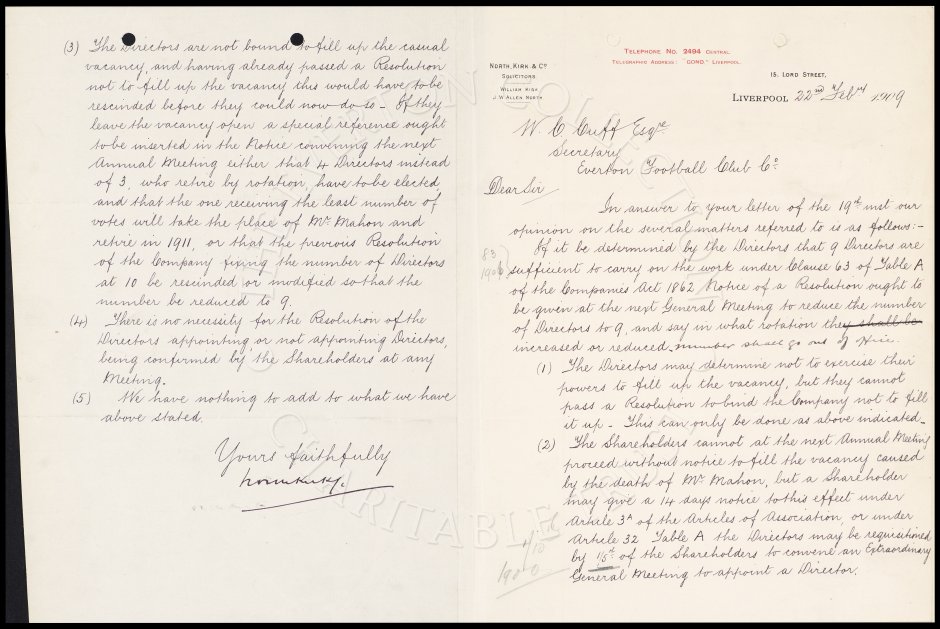 TELEPHONE NO. 2494 CENTRAL.
TELEGRAPHIC ADDRESS: "GOND," LIVERPOOL.
NORTH, KIRK & Co
SOLICITORS
WILLIAM KIRK
J. W. ALLEN NORTH
15, LORD STREET,
LIVERPOOL 22nd Feby 1909
W. C. Cuff Esqre
Secretary
Everton Football Club Co
Dear Sir
In answer to your letter of the 19th inst our
opinion on the several matters referred to is as follows:-
If it be determined by the Directors that 9 Directors are
sufficient to carry on the work under Clause 63 of Table A
of the Companies Act 1862 Notice of a Resolution ought to
be given at the next General Meeting to reduce the number
of Directors to 9, and say in what rotation they shall be
increased or reduced number shall go out of office.
83
1908
(1) The Directors may determine not to exercise their
powers to fill up the vacancy, but they cannot
pass a Resolution to bind the Company not to fill
it up - This can only be done as above indicated -
(2) The Shareholders cannot at the next Annual Meeting
proceed without notice to fill the vacancy caused
by the death of Mr Mahon, but a Shareholder
may give a 14 days notice to this effect under
Article 3A of the Articles of Association, or under
Article 32 Table A the Directors may be requisitioned
by 1/5th of the Shareholders to convene an Extraordinary
General Meeting to appoint a Director.
1/10
1900
(3) The Directors are not bound to fill up the casual
vacancy, and having already passed a Resolution
not to fill up the vacancy this would have to be
rescinded before they could now do so - If they
leave the vacancy open a special reference ought
to be inserted in the Notice convening the next
Annual Meeting either that 4 Directors instead
of 3, who retire by rotation, have to be elected
and that the one receiving the least number of
votes will take the place of Mr Mahon and
retire in 1911, or that the previous Resolution
of the Company fixing the number of Directors
at 10 be resinded or modified so that the
number be reduced to 9.
(4) There is no necessity for the Resolution of the
Directors appointing or not appointing Directors,
being confirmed by the Shareholders at any
Meeting.
(5) We have nothing to add to what we have
above stated.
Yours faithfully
CHARITABLE